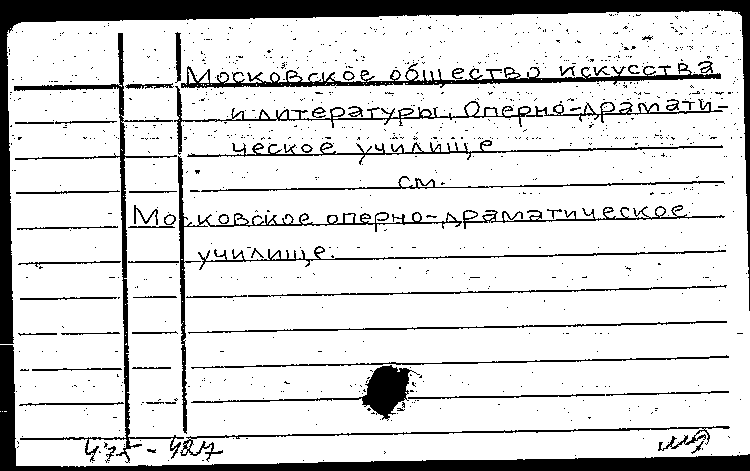 Московское общество искусства
и литературы. Оперно-драмати-
ческое училище
см.
Московское оперно-драматическое
училище.
475-4827